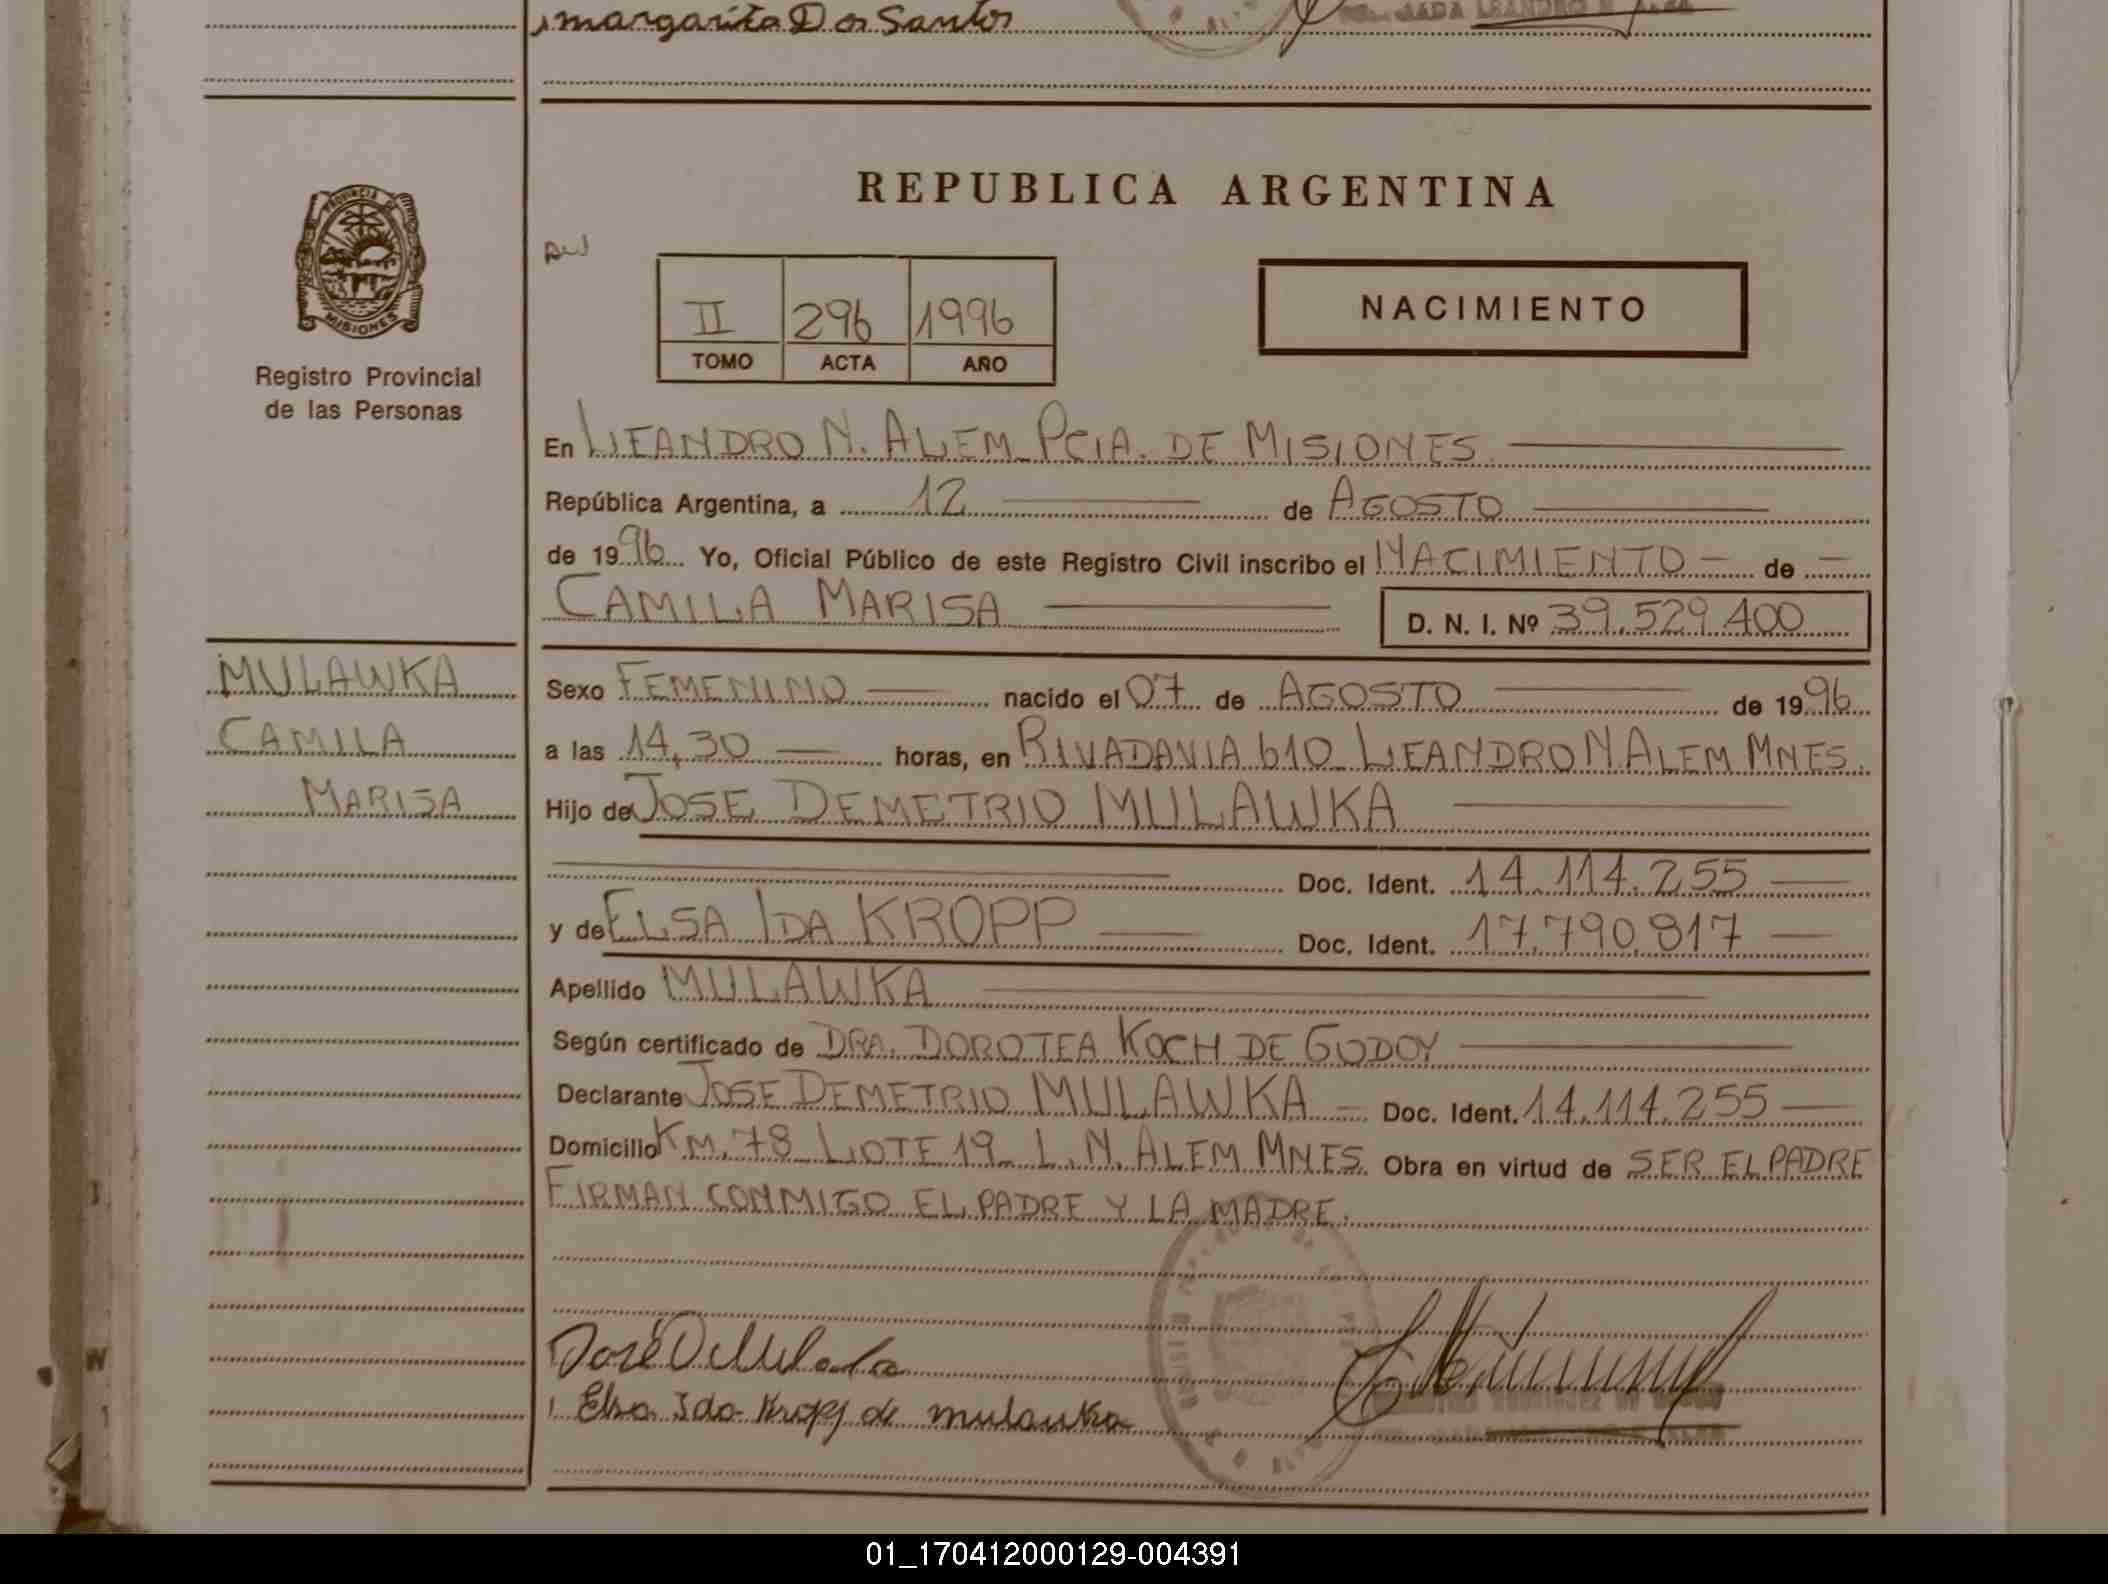 Margarita Dos Santos
REPUBLICA ARGENTINA
PROVINCIA DE
MISIONES
Registro Provincial
de las Personas
II 296 1996
TOMO ACTA AÑO
NACIMIENTO
En LEANDRO N. ALEM PCIA. DE MISIONES
República Argentina, a 12 de AGOSTO
de 1996 Yo, Oficial Público de este Registro Civil inscribo el NACIMIENTO de
CAMILA MARISA D. N. I. Nº 39.529.400
MULAWKA
CAMILA
MARISA
Sexo FEMENINO nacido el 07 de AGOSTO de 1996
a las 14,30 horas, en RIVADAVIA 610 LEANDRO N ALEM MNES.
Hijo de JOSE DEMETRIO MULAWKA
Doc. Ident. 14.114.255
y de ELSA IDA KROPP Doc. Ident. 17.790.817
Apellido MULAWKA
Según certificado de DRA. DOROTEA KOCH DE GODOY
Declarante JOSE DEMETRIO MULAWKA Doc. Ident. 14.114.255
Domicilio KM. 78 LOTE 19 L.N. ALEM MNES. Obra en virtud de SER EL PADRE
FIRMAN CONMIGO EL PADRE Y LA MADRE.
José D Mulawka
Elsa Ida Kropp de Mulawka
01_170412000129-004391